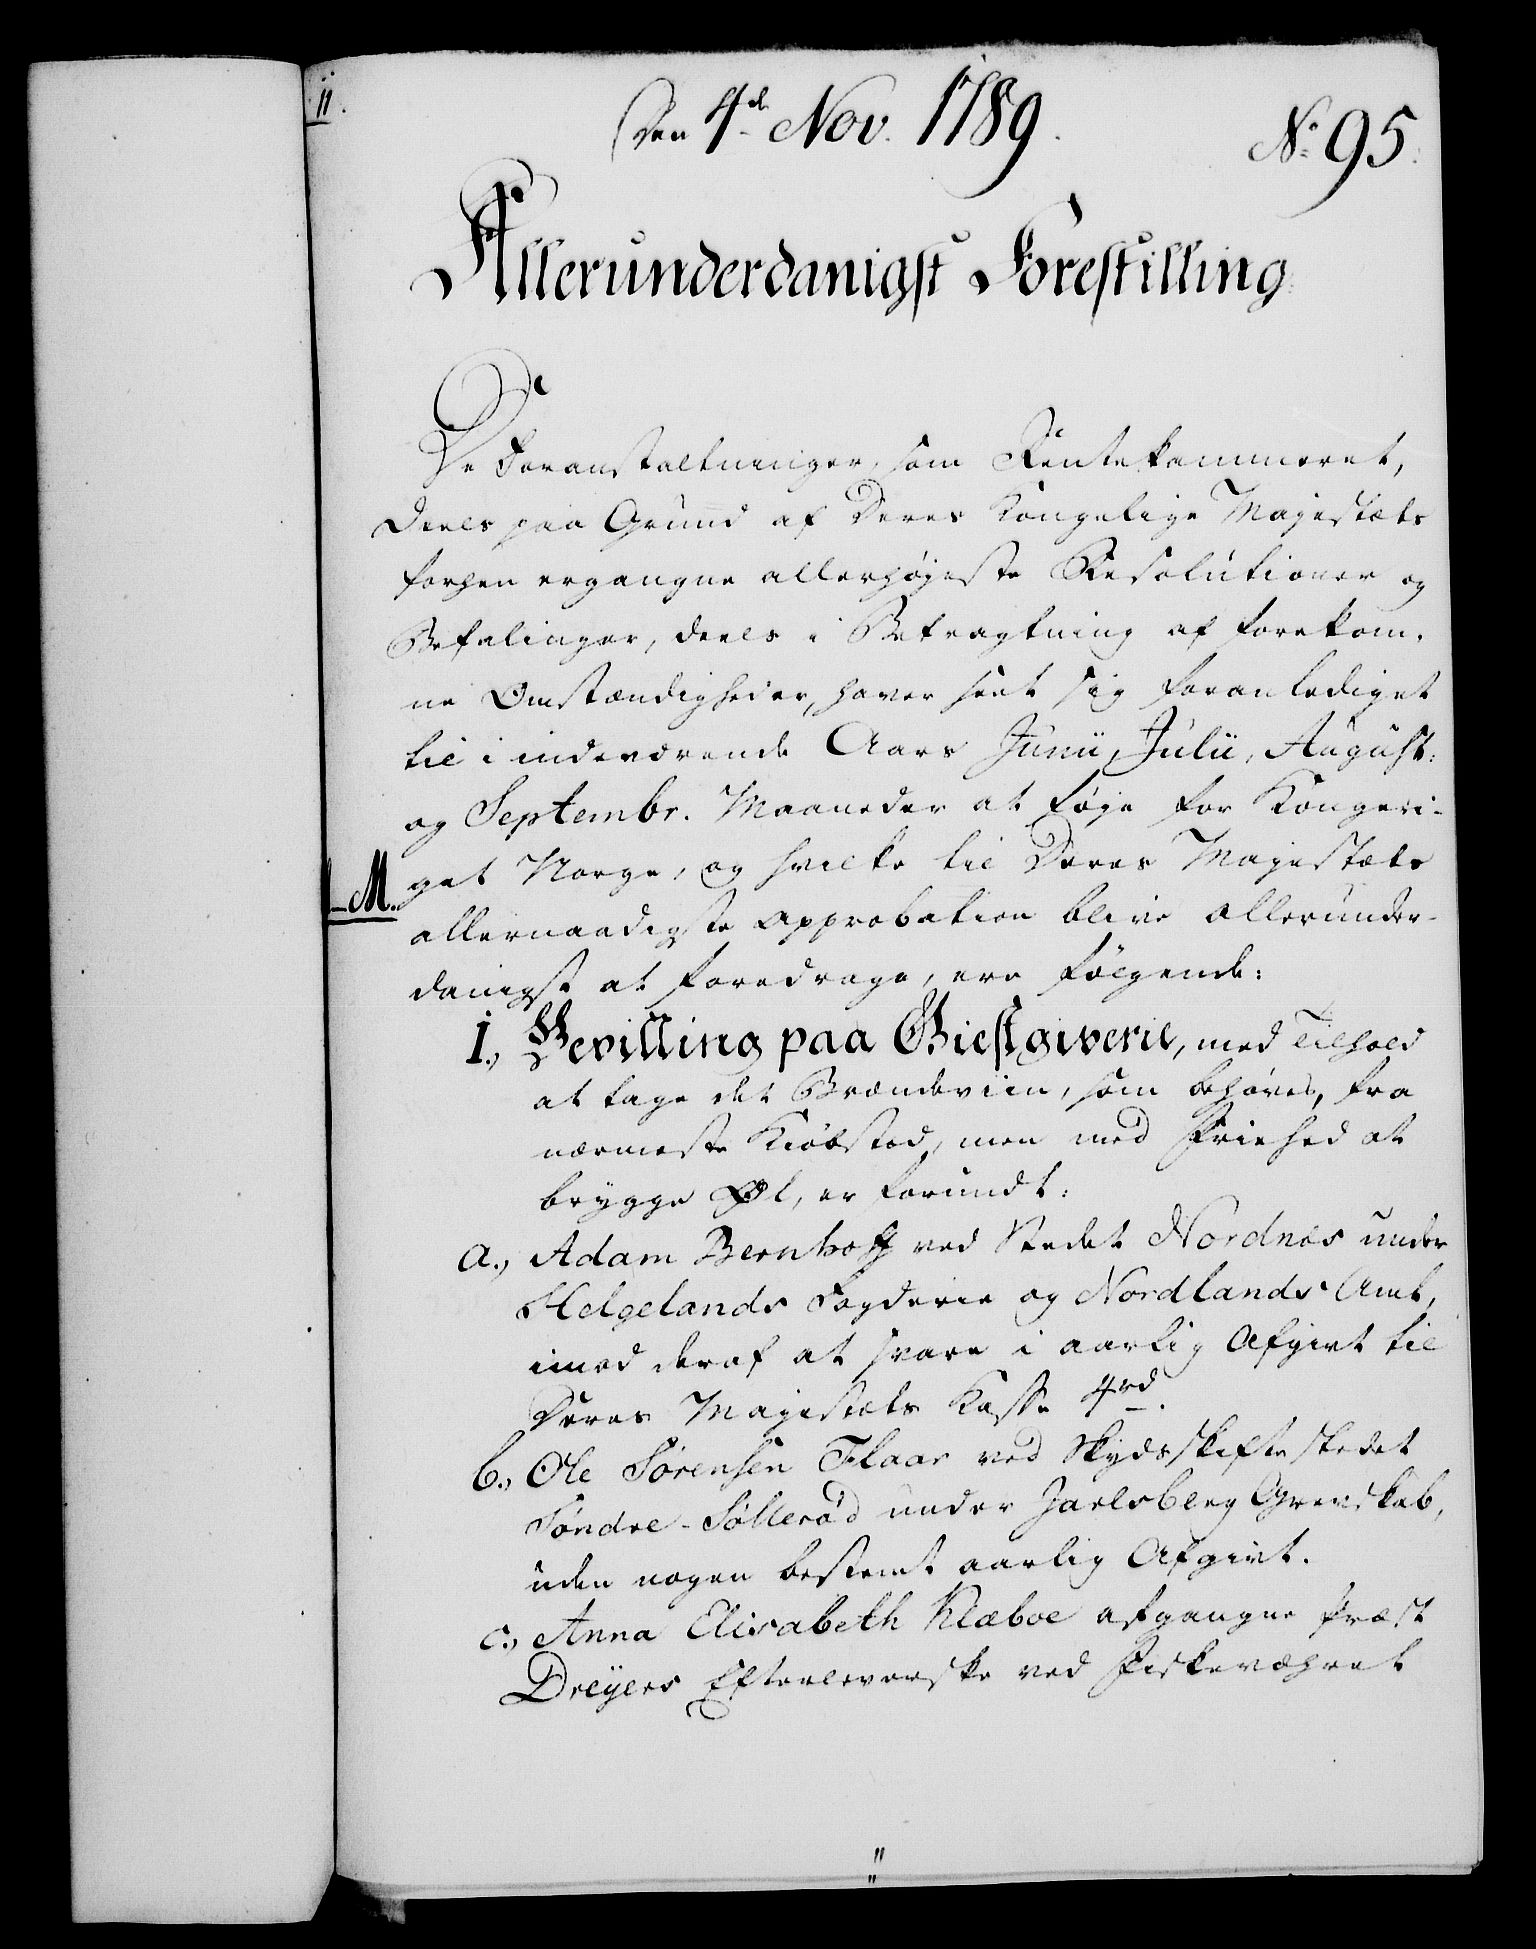 11.
Den 4de Nov. 1789.
No 95.
Allerunderdanigst Forestilling.
De Foranstaltninger, som Rentekammeret,
deels paa Grund af Deres Kongelige Majestæts
forhen ergangne allerhøjeste Resolutioner og
Befalinger, deels i Betragtning af forekom-
ne Omstændigheder, haver seet sig foranlediget
til i indeværende Aars Junii, Julii, August:
og Septembr. Maaneder at føje for Kongeri-
get Norge, og hvilke til Deres Majestæts
M.
allernaadigste Approbation blive allerunder-
danigst at foredrage, ere følgende:
1., Bevilling paa Giestgiverie, med Tilhold
at tage det Brændeviin, som behøves, fra
nærmeste Kiøbstad, men med Friehed at
brygge Øl, er forundt:
a., Adam Bernhoft ved Stedet Nordnæs under
Helgelands Fogderie og Nordlands Amt,
imod deraf at svare i aarlig Afgivt til
Deres Majestæts Kasse 4rd.
b., Ole Sørensen Flaar ved Skydsskiftestedet
Søndre-Sølleröd under Jarlsberg Grevskab,
uden nogen bestemt aarlig Afgivt.
c., Anna Elisabeth Klæboe afgangne Præst
Dreyers Efterleverske ved Fiskeværhret